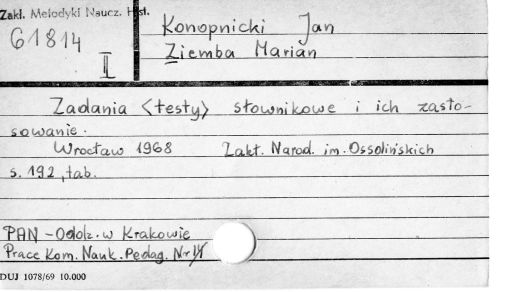 Zakł. Metodyki Naucz. Hist.
61814
I
Konopnicki Jan
Ziemba Marian
Zadania <testy> słownikowe i ich zasto-
sowanie.
Wrocław 1968 Zakł. Narod. im. Ossolińskich
s. 192, tab.
PAN - Oddz. w Krakowie
Prace Kom. Nauk. Pedag. Nr
DUJ 1078/69 10.000